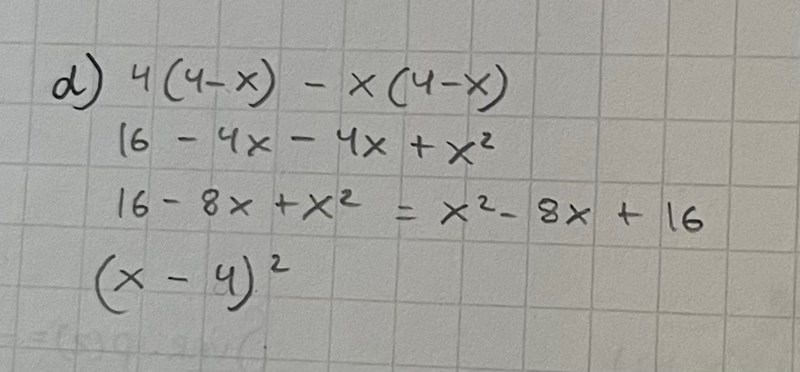 d) 4(4-x) - x(4-x)
16 - 4x - 4x + x²
16 - 8x + x² = x² - 8x + 16
(x - 4)²